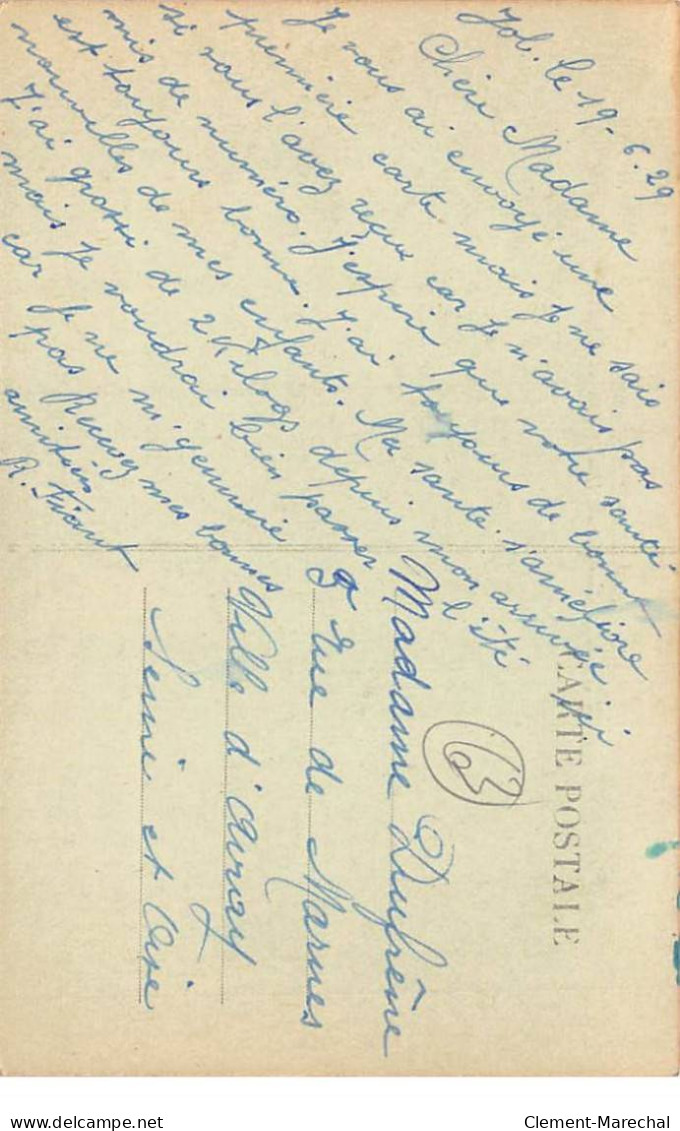 Job. le 19-6.29
Chère Madame
Je vous ai envoyé une
première carte mais je ne sais
si vous l'avez reçue car je n'avais pas
mis de numéro. J'espère que votre santé
est toujours bonne. J'ai toujours de bonnes
nouvelles de mes enfants. Ma santé s'améliore
J'ai grossi de 2 Kilogs depuis mon arrivée ici
mais je voudrai bien passer l'été
car je ne m'y ennuie
pas Recevez mes bonnes
amitiés
R. Fiant
CARTE POSTALE
63
Madame Dufrêne
9 rue de Marnes
Ville d'Avray
Seine et Oise
delcampe.net
Clement-Marechal